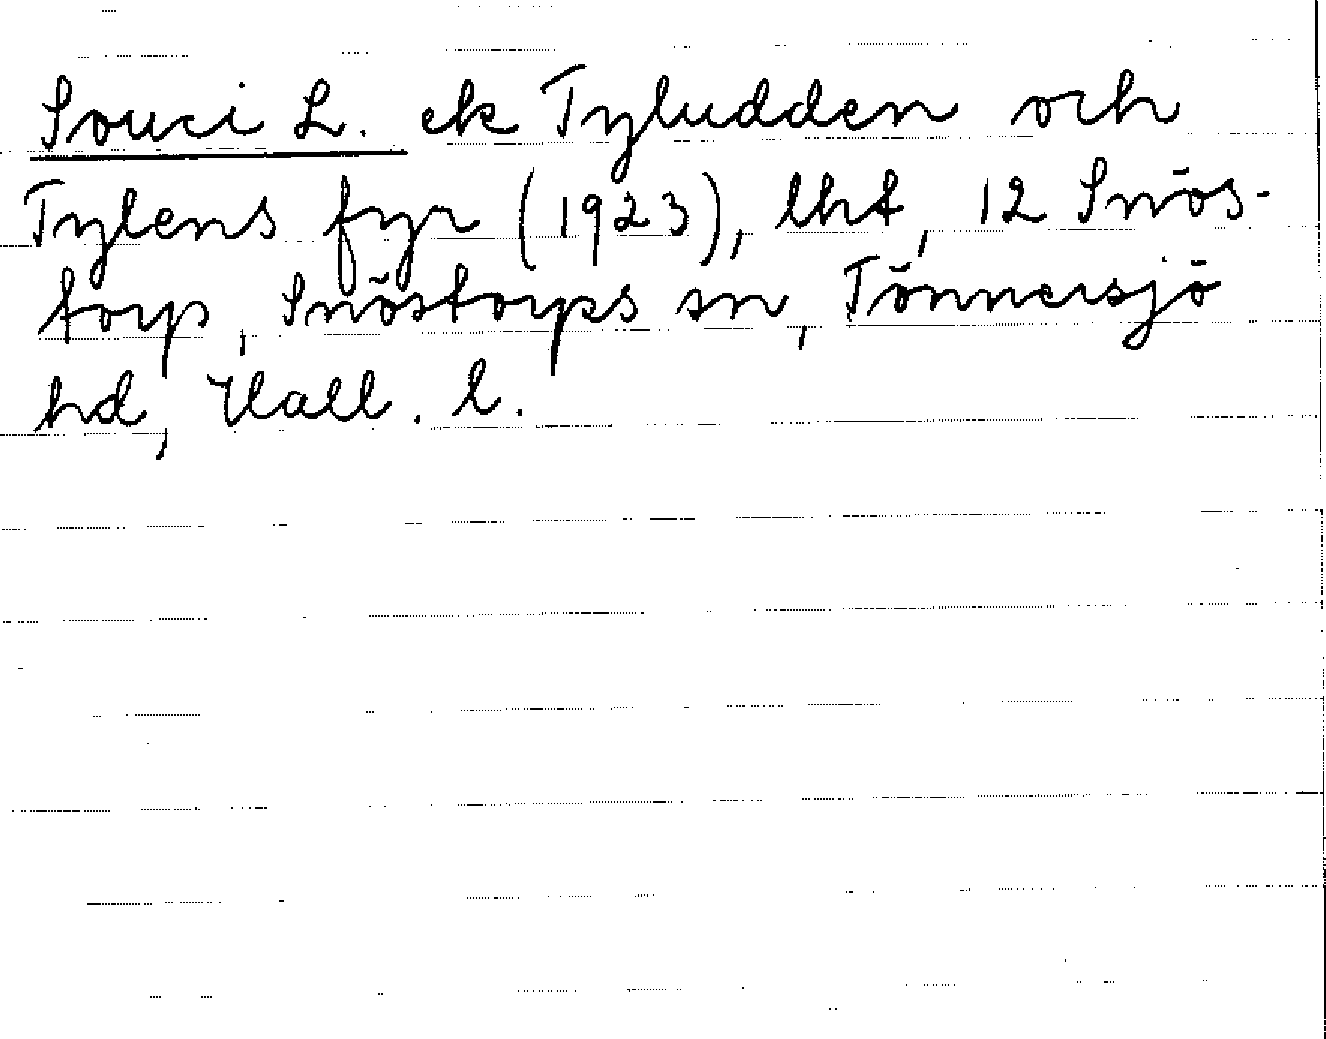 Souci L. ek Tyludden och
Tylens fyr (1923), lht, 12 Snös-
torp, Snöstorps sn, Tönnersjö
hd, Hall. l.